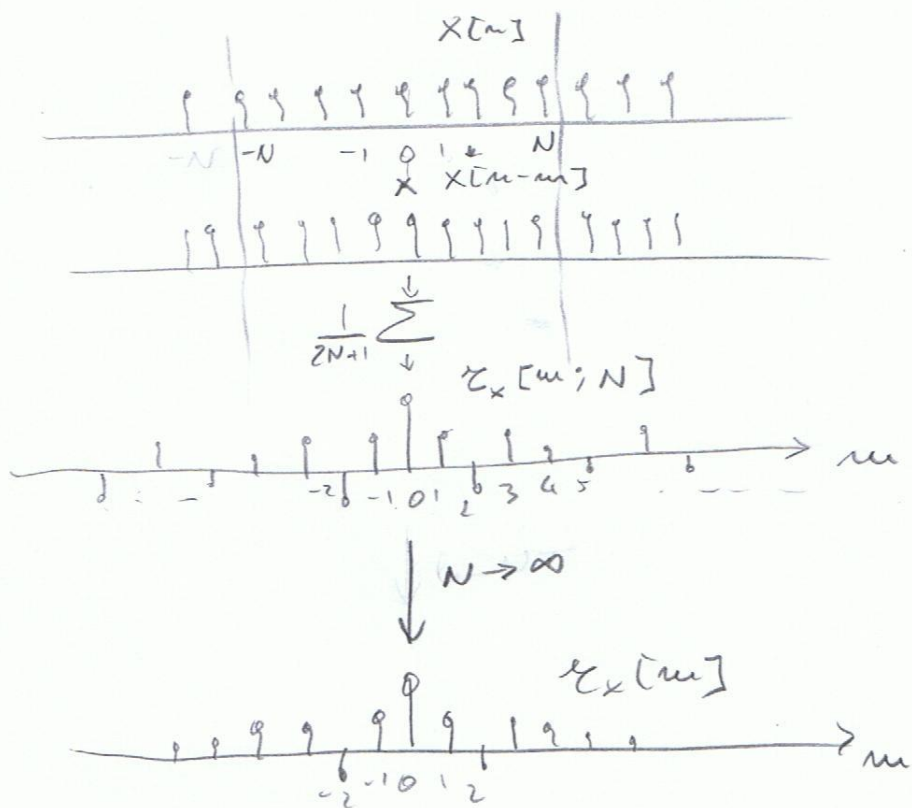 x[n]
-N -N -1 0 1 N
x x[n-m]
1/2N+1 Σ
r_x[m;N]
m
-2 -1 0 1 2 3 4 5
N → ∞
r_x[m]
m
-2 -1 0 1 2